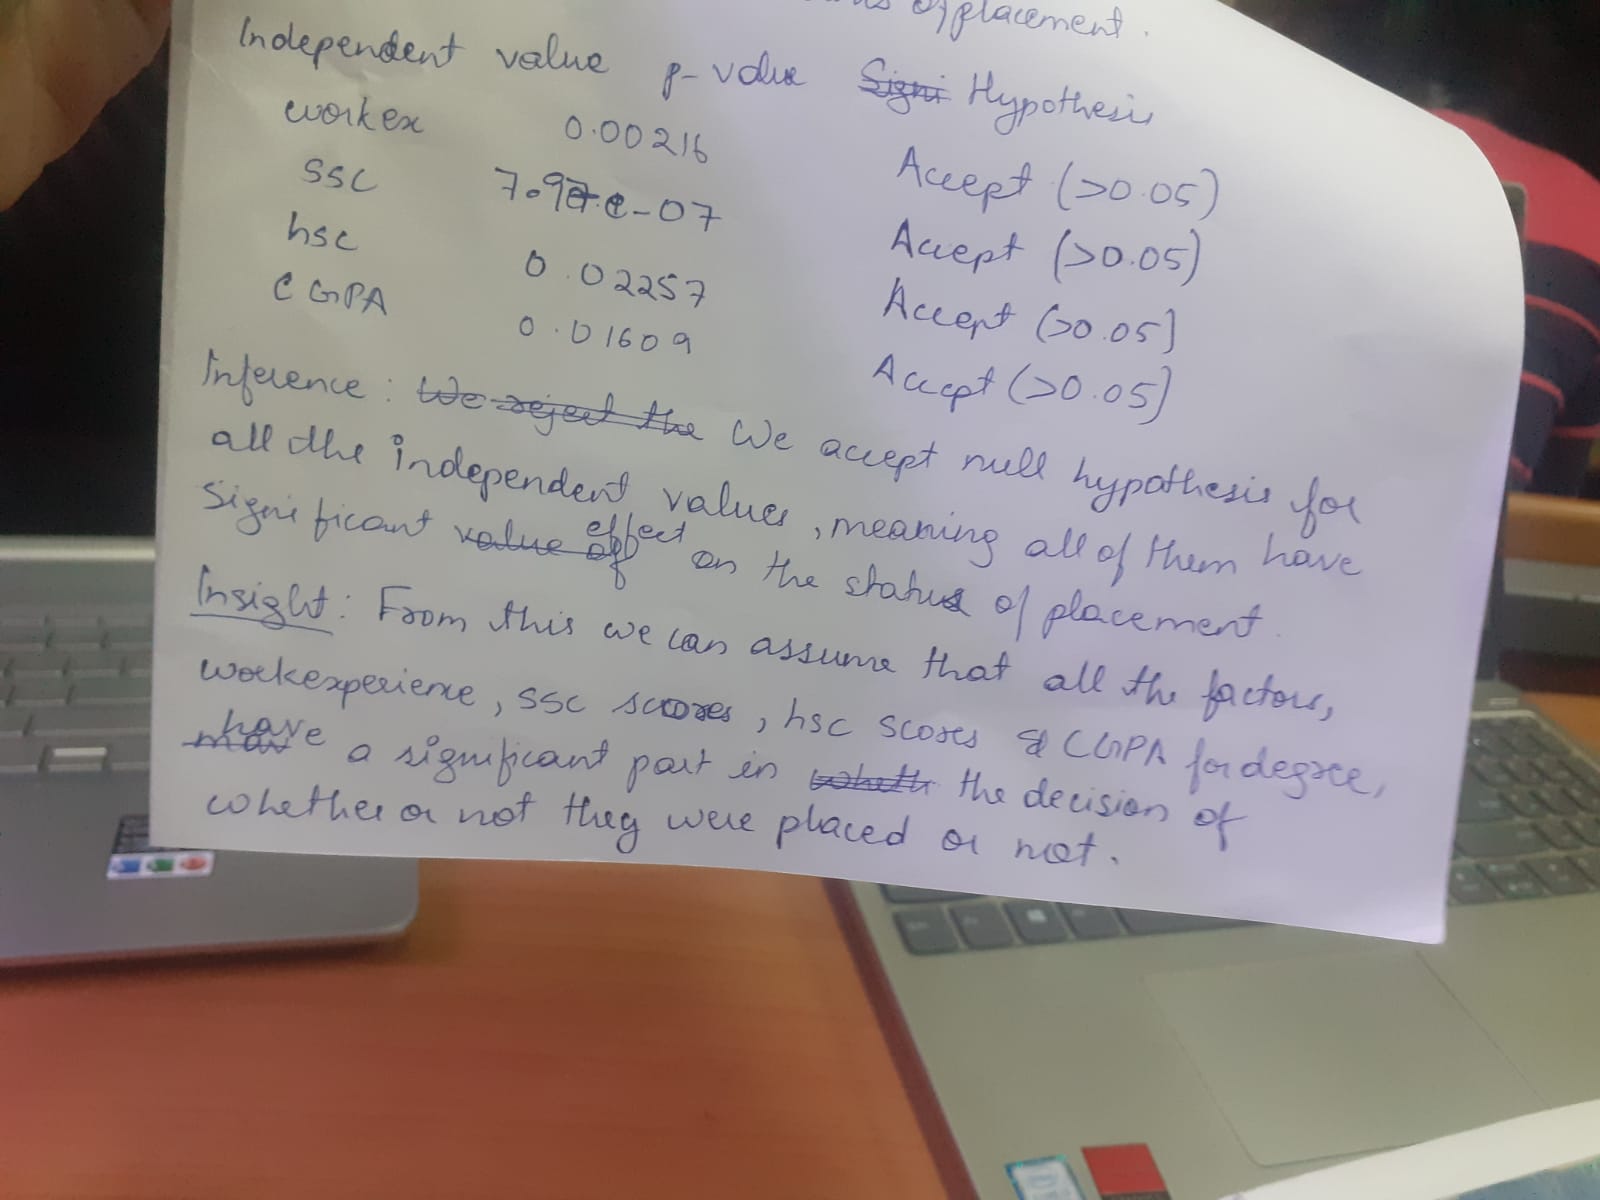 of placement.
Independent value p-value Signi Hypothesis
workex 0.00216 Accept (>0.05)
SSC 7.97e-07 Accept (>0.05)
hsc 0.02257 Accept (>0.05)
CGPA 0.01609 Accept (>0.05)
Inference: We reject the We accept null hypothesis for
all the independent values, meaning all of them have
significant value of effect on the status of placement.
Insight: From this we can assume that all the factors,
workexperience, SSC scores, hsc scores & CGPA for degree,
have a significant part in wheth the decision of
whether or not they were placed or not.